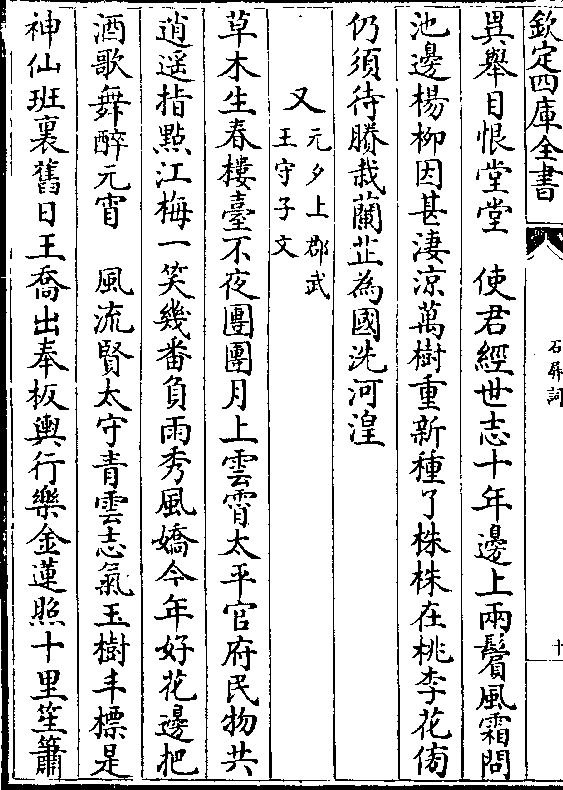 欽定四庫全書
石屏詞
十
異舉目恨堂堂　使君經世志十年邊上兩鬢風霜問
池邊楊柳因甚凄涼萬樹重新種了株株在桃李花傍
仍須待賸栽蘭芷為國洗河湟
又元夕上郡武
王守子文
草木生春樓臺不夜團團月上雲霄太平官府民物共
逍遥指點江梅一笑幾番負雨秀風嬌今年好花邊把
酒歌舞醉元宵　風流賢太守青雲志氣玉樹丰標是
神仙班裏舊日王喬出奉板輿行樂金蓮照十里笙簫